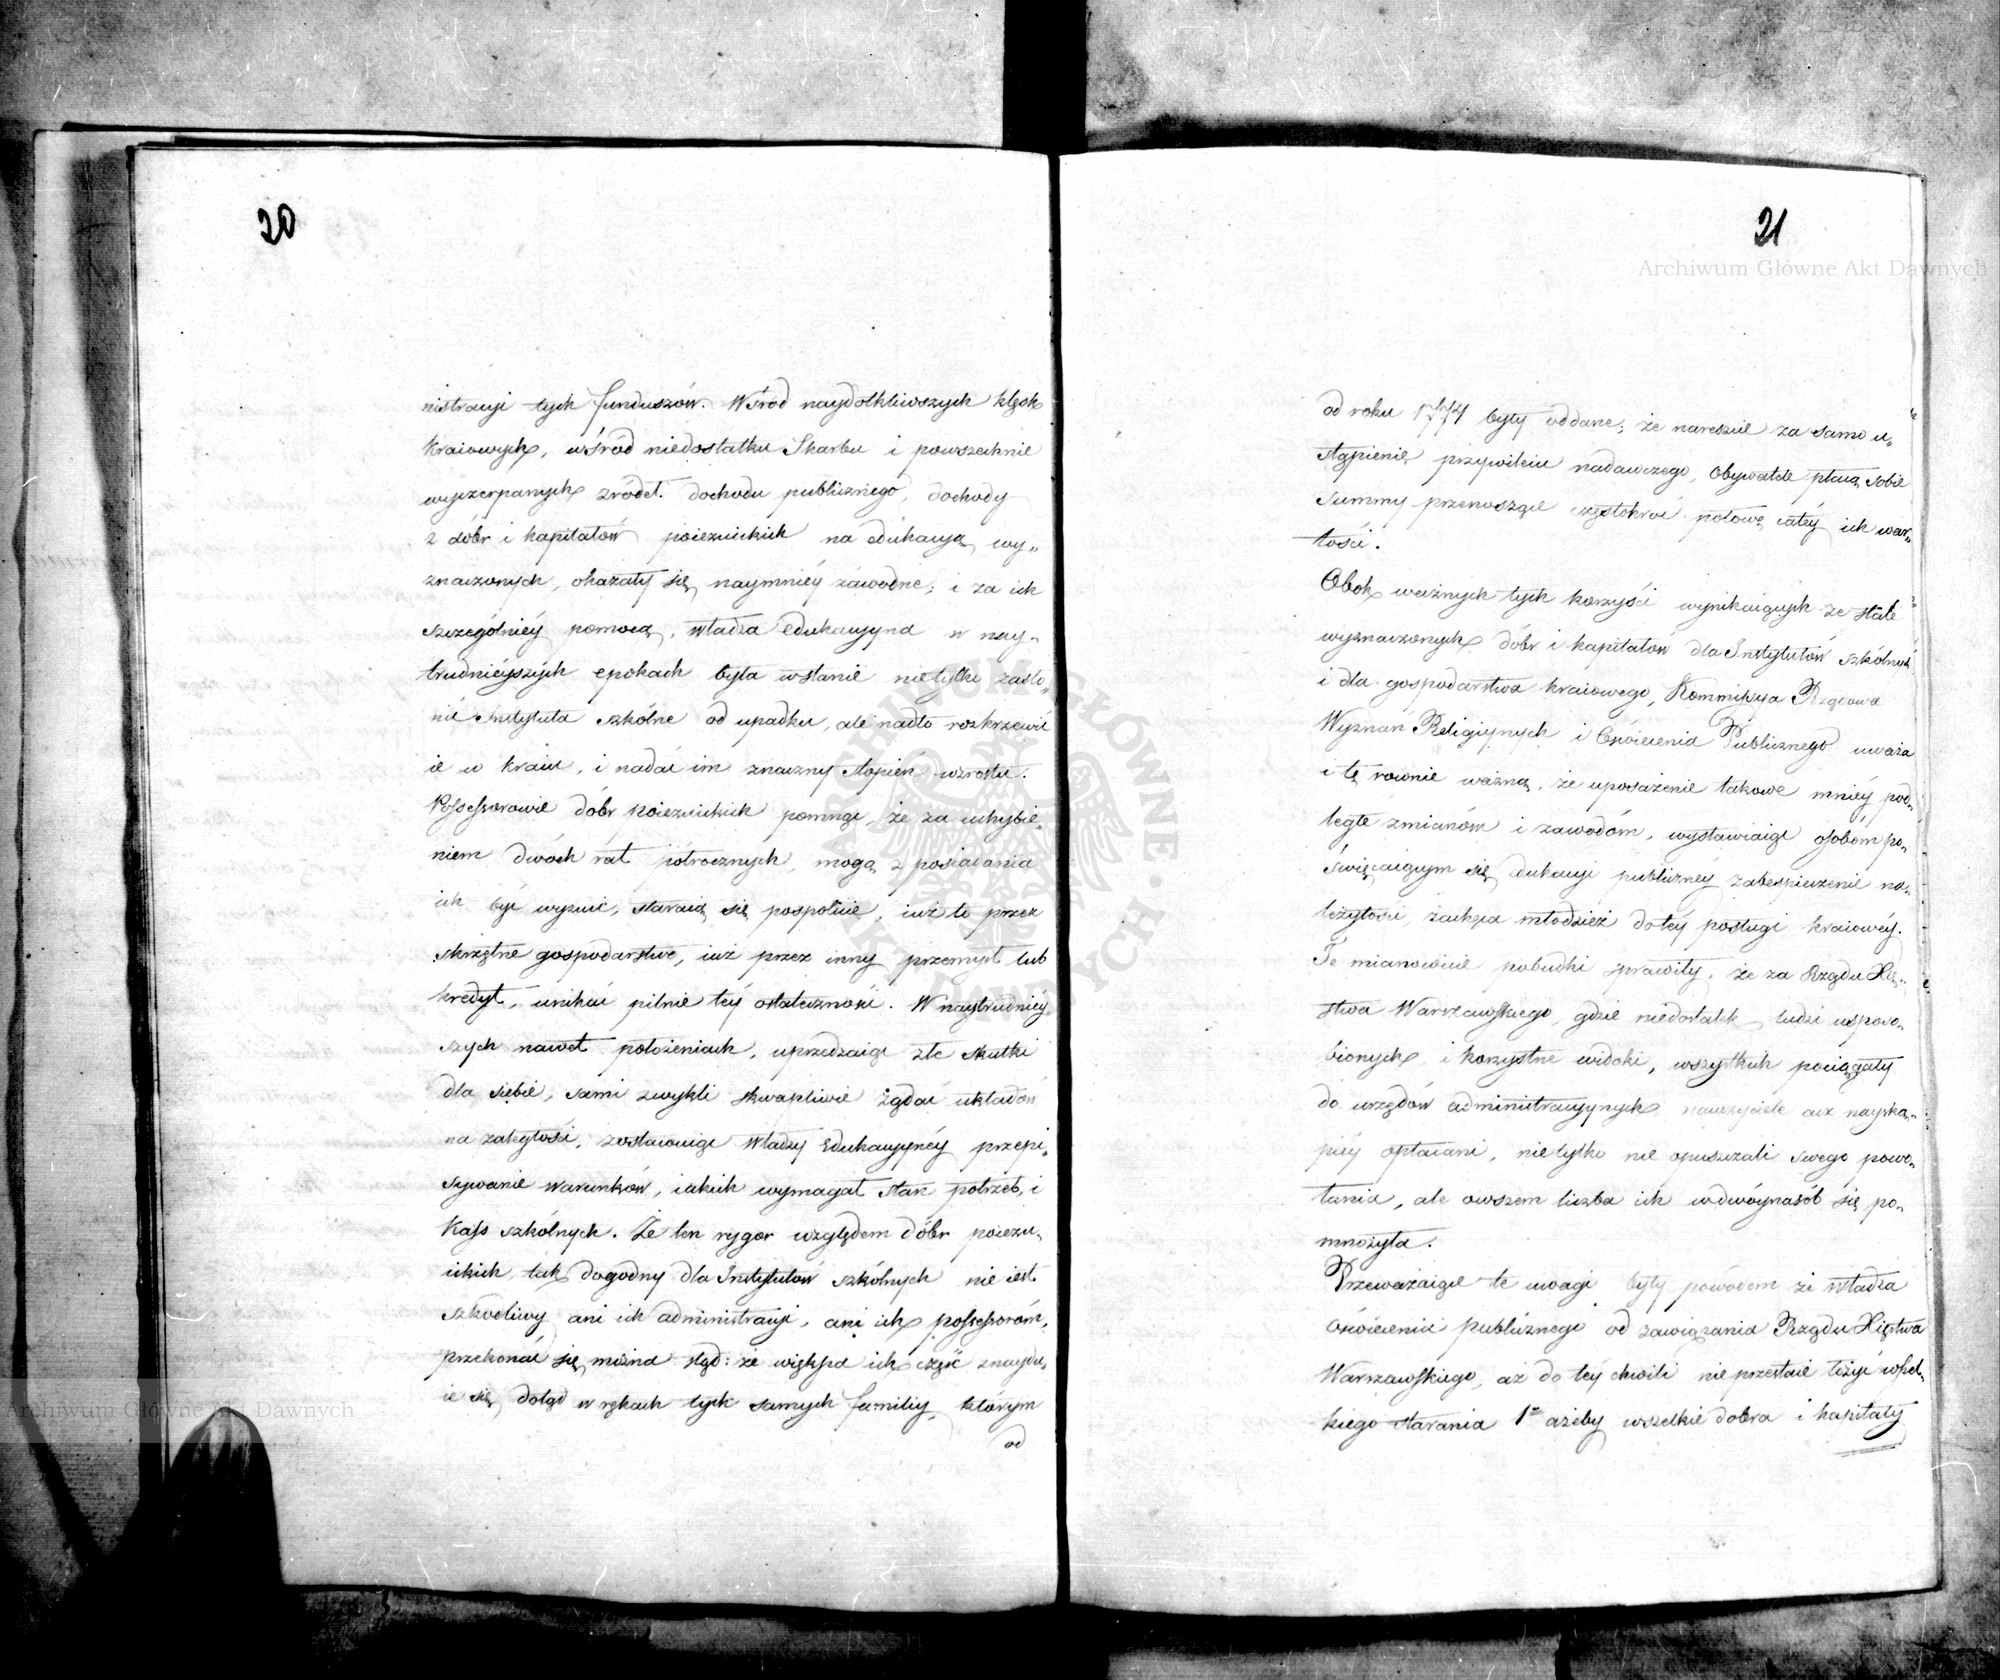 20
nistracyi tych funduszów. Wśród naydotkliwszych klęsk
kraiowych, wśród niedostatku Skarbu i powszechnie
wyczerpanych źródeł dochodu publicznego, dochody
z dóbr i kapitałów poiezuickich na edukacyą wy„
znaczonych, okazały się naymniéy zawodne; i za ich
szczególniéy pomocą, władza edukacyyna w nay„
trudnieyszych epokach była wstanie nietylko zasło„
nić Instytuta szkólne od upadku, ale nadto rozkrzewić
ie w kraiu, i nadać im znaczny stopień wzrostu.
Possessorowie dóbr poiezuickich pomnąc, że za uchybie„
niem dwóch rat półrocznych, mogą z posiadania
ich być wyzuci, staraią się pospolicie, iuż to przez
skrzętne gospodarstwo, iuż przez inny przemysł lub
kredyt, unikać pilnie téy ostateczności. W naytrudniéy
szych nawet położeniach, uprzedzaiąc złe skutki
dla siebie, sami zwykli skwapliwie żądać układów
na zaległości, zostawuiąc Władzy Edukacyynéy przepi„
sywanie warunków, iakich wymagał stan potrzeb i
Kass szkólnych. Że ten rygor względem dóbr poiezu„
ickich tak dogodny dla Instytutów szkólnych nie iest
szkodliwy ani ich administracyi, ani ich possessorom,
przekonać się można stąd: że większa ich część znaydu„
ie się dotąd w rękach tych samych familiy, którym
od
21
Archiwum Główne Akt Dawnych
od roku 1774 były oddane; że nareszcie za samo u„
stąpienie przywileiu nadawczego, Obywatele płacą sobie
summy przenoszące częstokroć połowę całéy ich war„
tości.
Obok ważnych tych korzyści wynikaiących ze stale
wyznaczonych dóbr i kapitałów dla Instytutów szkólnych
i dla gospodarstwa kraiowego, Kommissya Rządowa
Wyznań Religiynych i Oświecenia Publicznego uważa
i tę równie ważną, że uposażenie takowe mniéy pod„
ległe zmianóm i zawodóm, wystawiaiąc osobóm po„
święcaiącym się edukacyi publiczney zabespieczenie na„
leżytości, zachęca młodzież do téy posługi kraiowéy.
Te mianowicie pobudki sprawiły, że za Rządu Xię„
stwa Warszawskiego, gdzie niedostatek ludzi usposo„
bionych i korzystne widoki, wszystkich pociągały
do urzędów administracyynych nauczyciele acz nayską„
piéy opłacani, nietylko nie opuszczali swego powo„
łania, ale owszem liczba ich wdwóynasób się po„
mnożyła.
Przeważaiące te uwagi były powodem że władza
Oświecenia publicznego od zawiązania Rządu Xięstwa
Warszawskiego, aż do téy chwili nieprzestaie łożyć wszel„
kiego starania 1º ażeby wszelkie dobra i kapitały
ARCHIWUM GŁÓWNE AKT DAWNYCH
Archiwum Główne Akt Dawnych